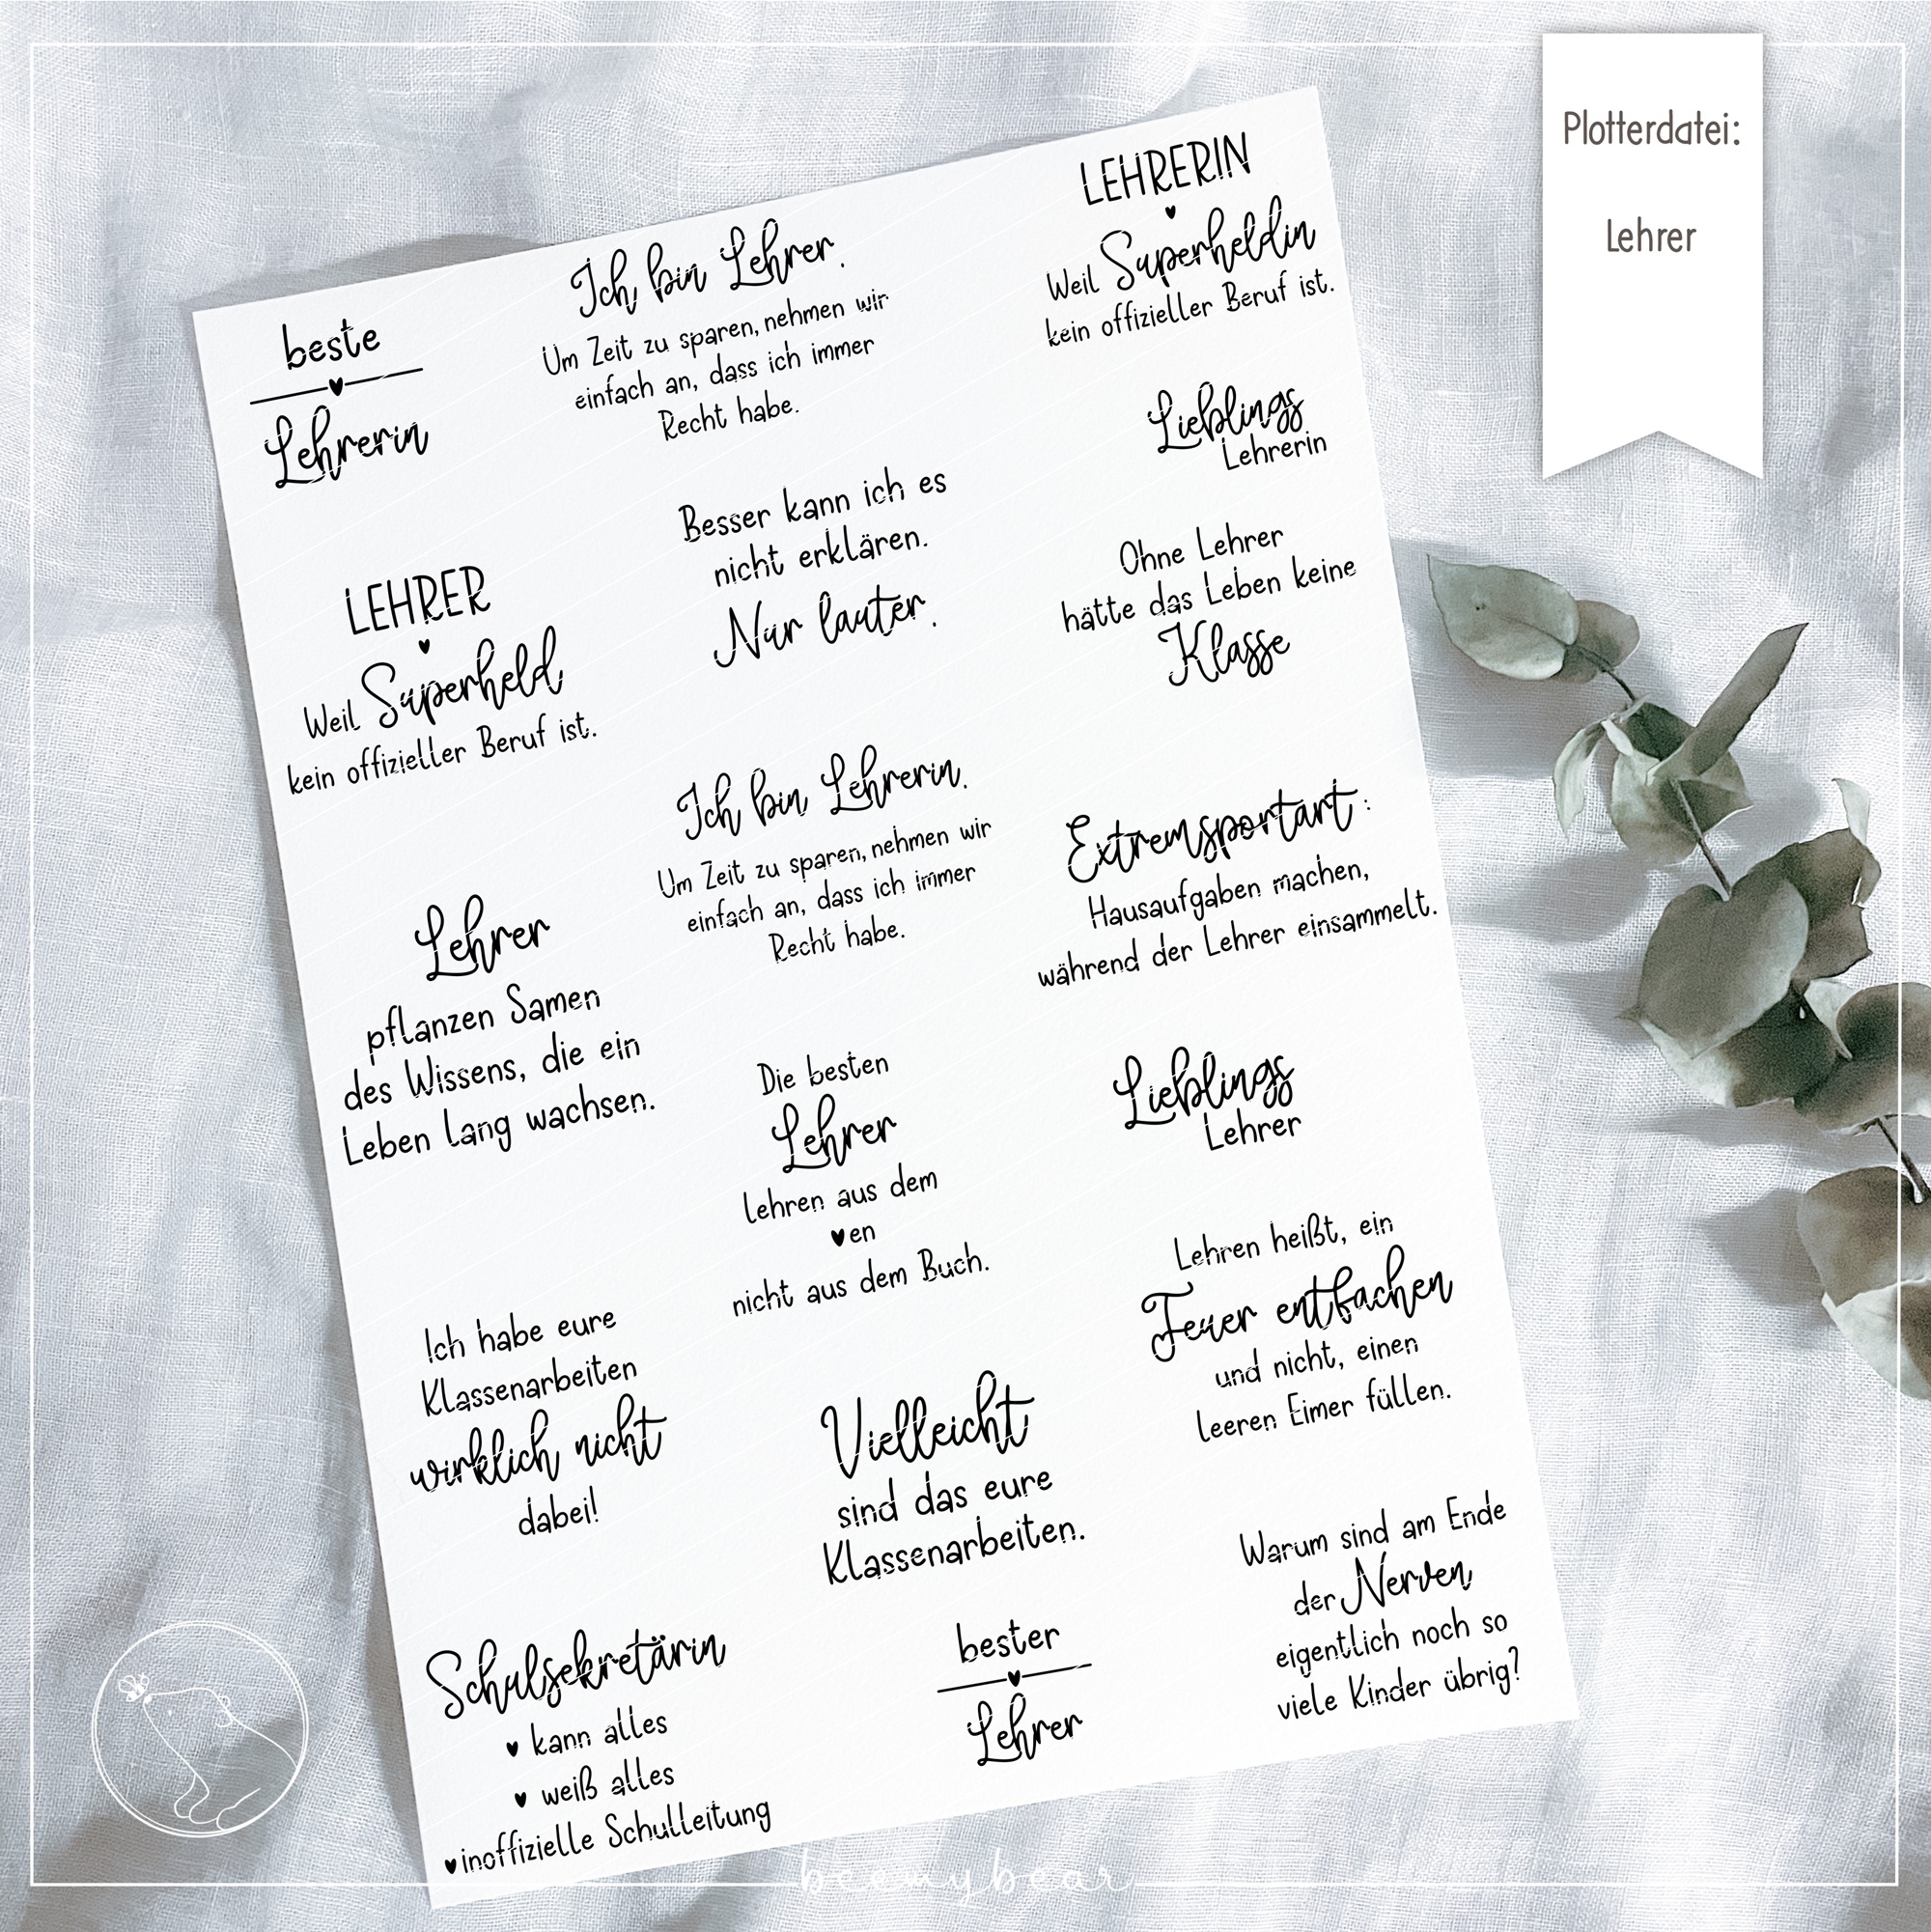 Plotterdatei:
Lehrer
beste
Lehrerin
LEHRER
Weil Superheld
kein offizieller Beruf ist.
Lehrer
pflanzen Samen
des Wissens, die ein
Leben lang wachsen.
Ich habe eure
Klassenarbeiten
wirklich nicht
dabei!
Schulsekretärin
♥ kann alles
♥ weiß alles
♥ inoffizielle Schulleitung
Ich bin Lehrer.
Um Zeit zu sparen, nehmen wir
einfach an, dass ich immer
Recht habe.
Besser kann ich es
nicht erklären.
Nur lauter.
Ich bin Lehrerin.
Um Zeit zu sparen, nehmen wir
einfach an, dass ich immer
Recht habe.
Die besten
Lehrer
lehren aus dem
♥en
nicht aus dem Buch.
Vielleicht
sind das eure
Klassenarbeiten.
bester
Lehrer
LEHRERIN
Weil Superheldin
kein offizieller Beruf ist.
Lieblings
Lehrerin
Ohne Lehrer
hätte das Leben keine
Klasse
Extremsportart:
Hausaufgaben machen,
während der Lehrer einsammelt.
Lieblings
Lehrer
Lehren heißt, ein
Feuer entfachen
und nicht, einen
leeren Eimer füllen.
Warum sind am Ende
der Nerven
eigentlich noch so
viele Kinder übrig?
beemybear